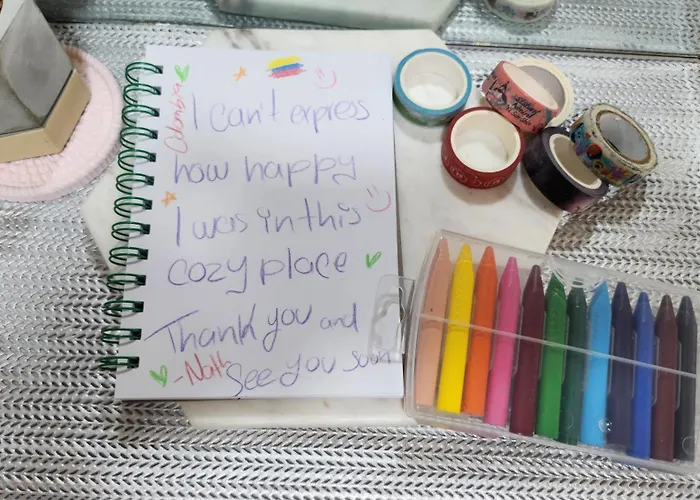 Colombia
I can't express
how happy
I was in this
cozy place
Thank you and
See you soon
-Nath